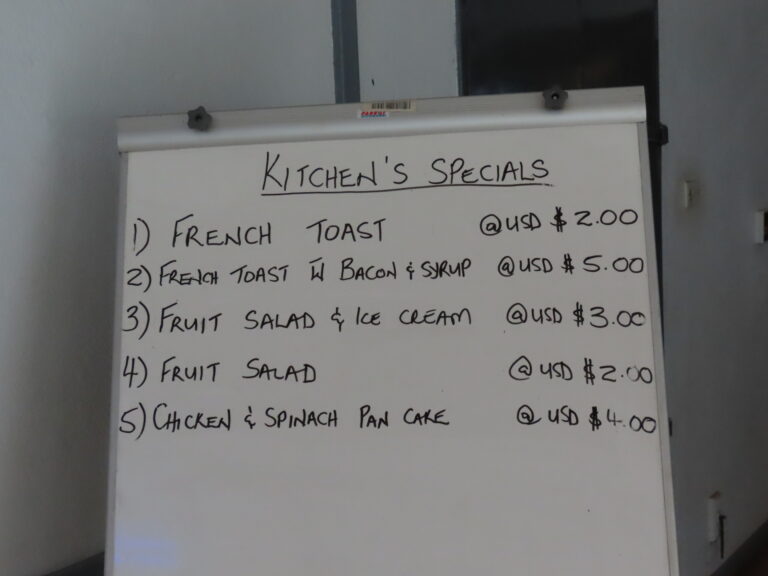 PARROT
KITCHEN'S SPECIALS
1) FRENCH TOAST @USD $2.00
2) FRENCH TOAST W BACON & SYRUP @USD $5.00
3) FRUIT SALAD & ICE CREAM @USD $3.00
4) FRUIT SALAD @ USD $2.00
5) CHICKEN & SPINACH PAN CAKE @ USD $4.00